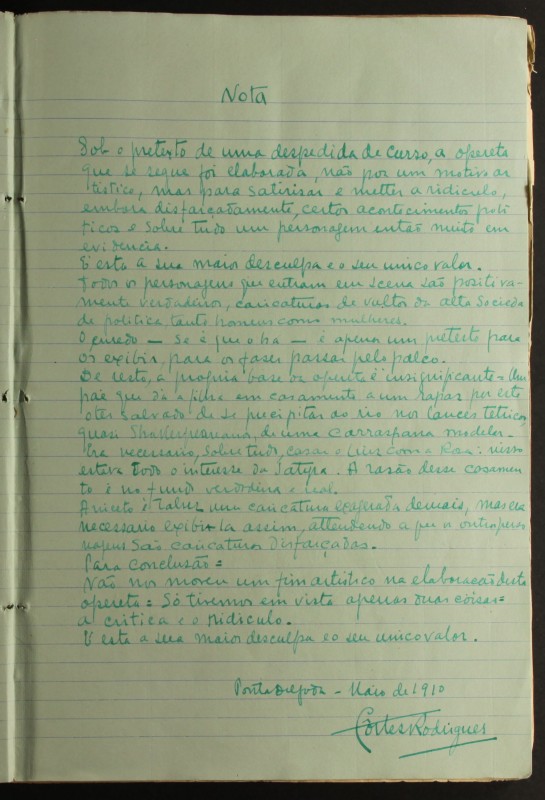 Nota
Sob o pretexto de uma despedida de curso, a opereta
que se segue foi elaborada, não por um motivo ar
tistico, mas para satirisar e metter a ridiculo,
embora disfarçadamente, certos acontecimentos poli
ticos e sobre tudo um personagem então muito em
evidencia.
E' esta a sua maior desculpa e o seu unico valor.
Todos os personagens que entram em scena são positiva-
mente verdadeiros, caricaturas de vultos da alta Socieda
de politica, tanto homens como mulheres.
O enredo — se é que o ha — é apenas um pretexto para
os exibir, para os fazer passar pelo palco.
De resto, a propria base da opereta é insignificante = Um
pae que dá a filha em casamento a um rapaz por este
o ter salvado de se precipitar ao rio nos lances tetricos,
quasi Shakespeareanos, de uma carraspana modelar.
Era necessario, sobre tudo, casar o Luiz com a Rosa: nisso
estava todo o interesse da Satyra. A razão desse casamen
to é no fundo verdadeira e real.
é talvez uma caricatura exagerada demais, mas era
necessario exibil-a assim, attendendo a que os outros perso
nagens são caricaturas disfarçadas.
Para conclusão =
Não nos moveu um fim artistico na elaboração desta
opereta = Só tivemos em vista apenas duas coisas =
a critica e o ridiculo.
E' esta a sua maior desculpa e o seu unico valor.
Ponta Delgada — Maio de 1910
Côrtes Rodrigues